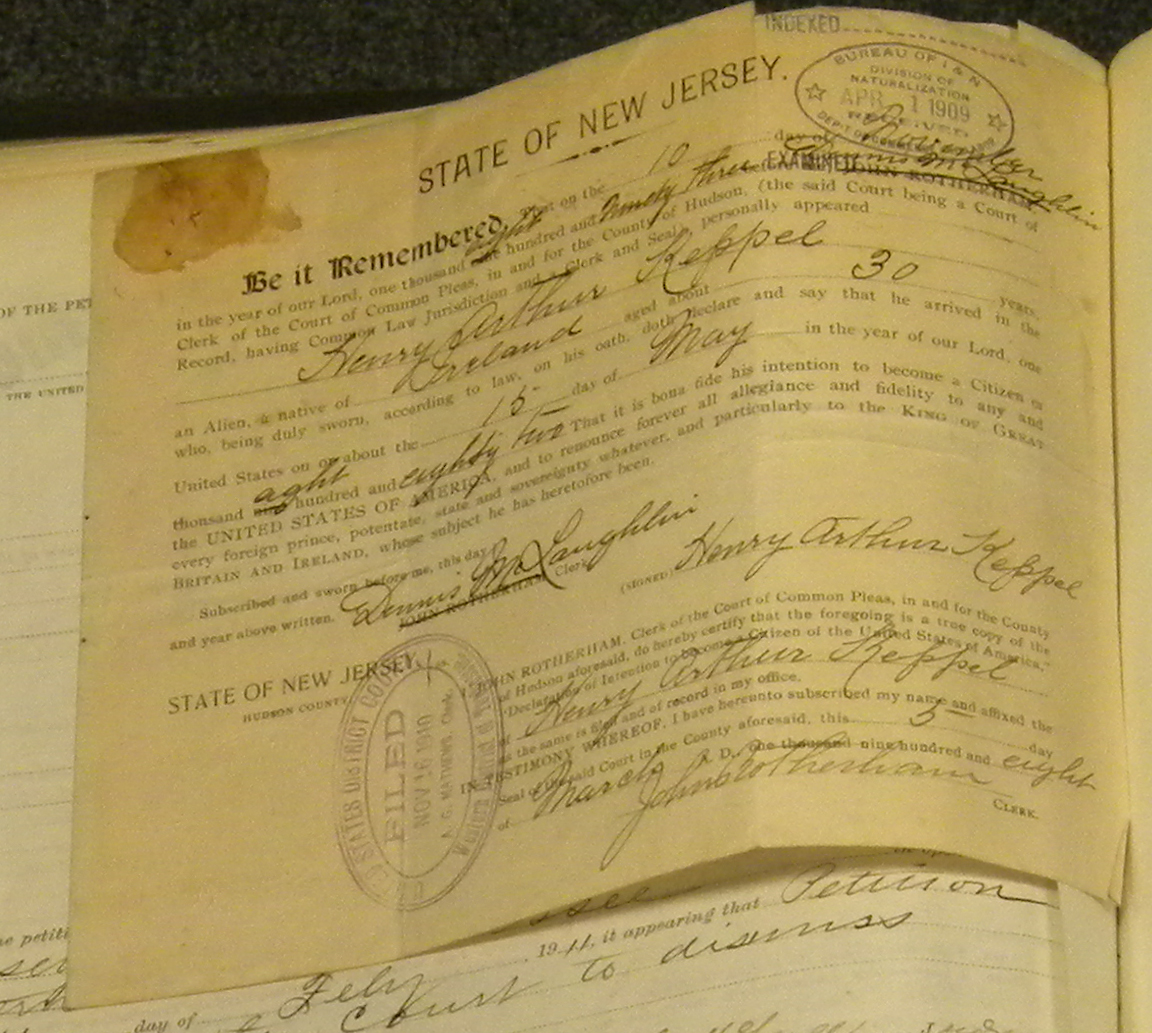 INDEXED
BUREAU OF I & N
DIVISION OF
NATURALIZATION
APR 1 1909
RECEIVED
STATE OF NEW JERSEY.
EXAMINED
Be it Remembered, That on the 10 day of November
in the year of our Lord, one thousand eight hundred and ninety three before Dennis McLaughlin JOHN ROTHERHAM,
Clerk of the Court of Common Pleas, in and for the County of Hudson, (the said Court being a Court of
Record, having Common Law Jurisdiction and a Clerk and Seal), personally appeared
Henry Arthur Keppel
an Alien, a native of Ireland aged about 30 years,
who, being duly sworn, according to law, on his oath, doth declare and say that he arrived in the
United States on or about the 15 day of May in the year of our Lord, one
thousand eight hundred and eighty two That it is bona fide his intention to become a Citizen of
the UNITED STATES OF AMERICA, and to renounce forever all allegiance and fidelity to any and
every foreign prince, potentate, state and sovereignty whatever, and particularly to the KING OF GREAT
BRITAIN AND IRELAND, whose subject he has heretofore been.
Subscribed and sworn before me, this day
and year above written.
Dennis McLaughlin
JOHN ROTHERHAM Clerk
(SIGNED) Henry Arthur Keppel
STATE OF NEW JERSEY,
HUDSON COUNTY
I, JOHN ROTHERHAM, Clerk of the Court of Common Pleas, in and for the County
of Hudson aforesaid, do hereby certify that the foregoing is a true copy of the
"Declaration of Intention to become a Citizen of the United States of America,"
of Henry Arthur Keppel
as the same is filed and of record in my office.
IN TESTIMONY WHEREOF, I have hereunto subscribed my name and affixed the
Seal of the said Court in the County aforesaid, this 5 day
of March A. D. one thousand nine hundred and eight
John Rotherham
CLERK.
STATES DISTRICT COURT
FILED
NOV 16 1910
A. G. MATHEWS, Clerk.
OF THE PET
THE UNITED
he petiti
1911, it appearing that Petition
day of Feby
Court to dismiss